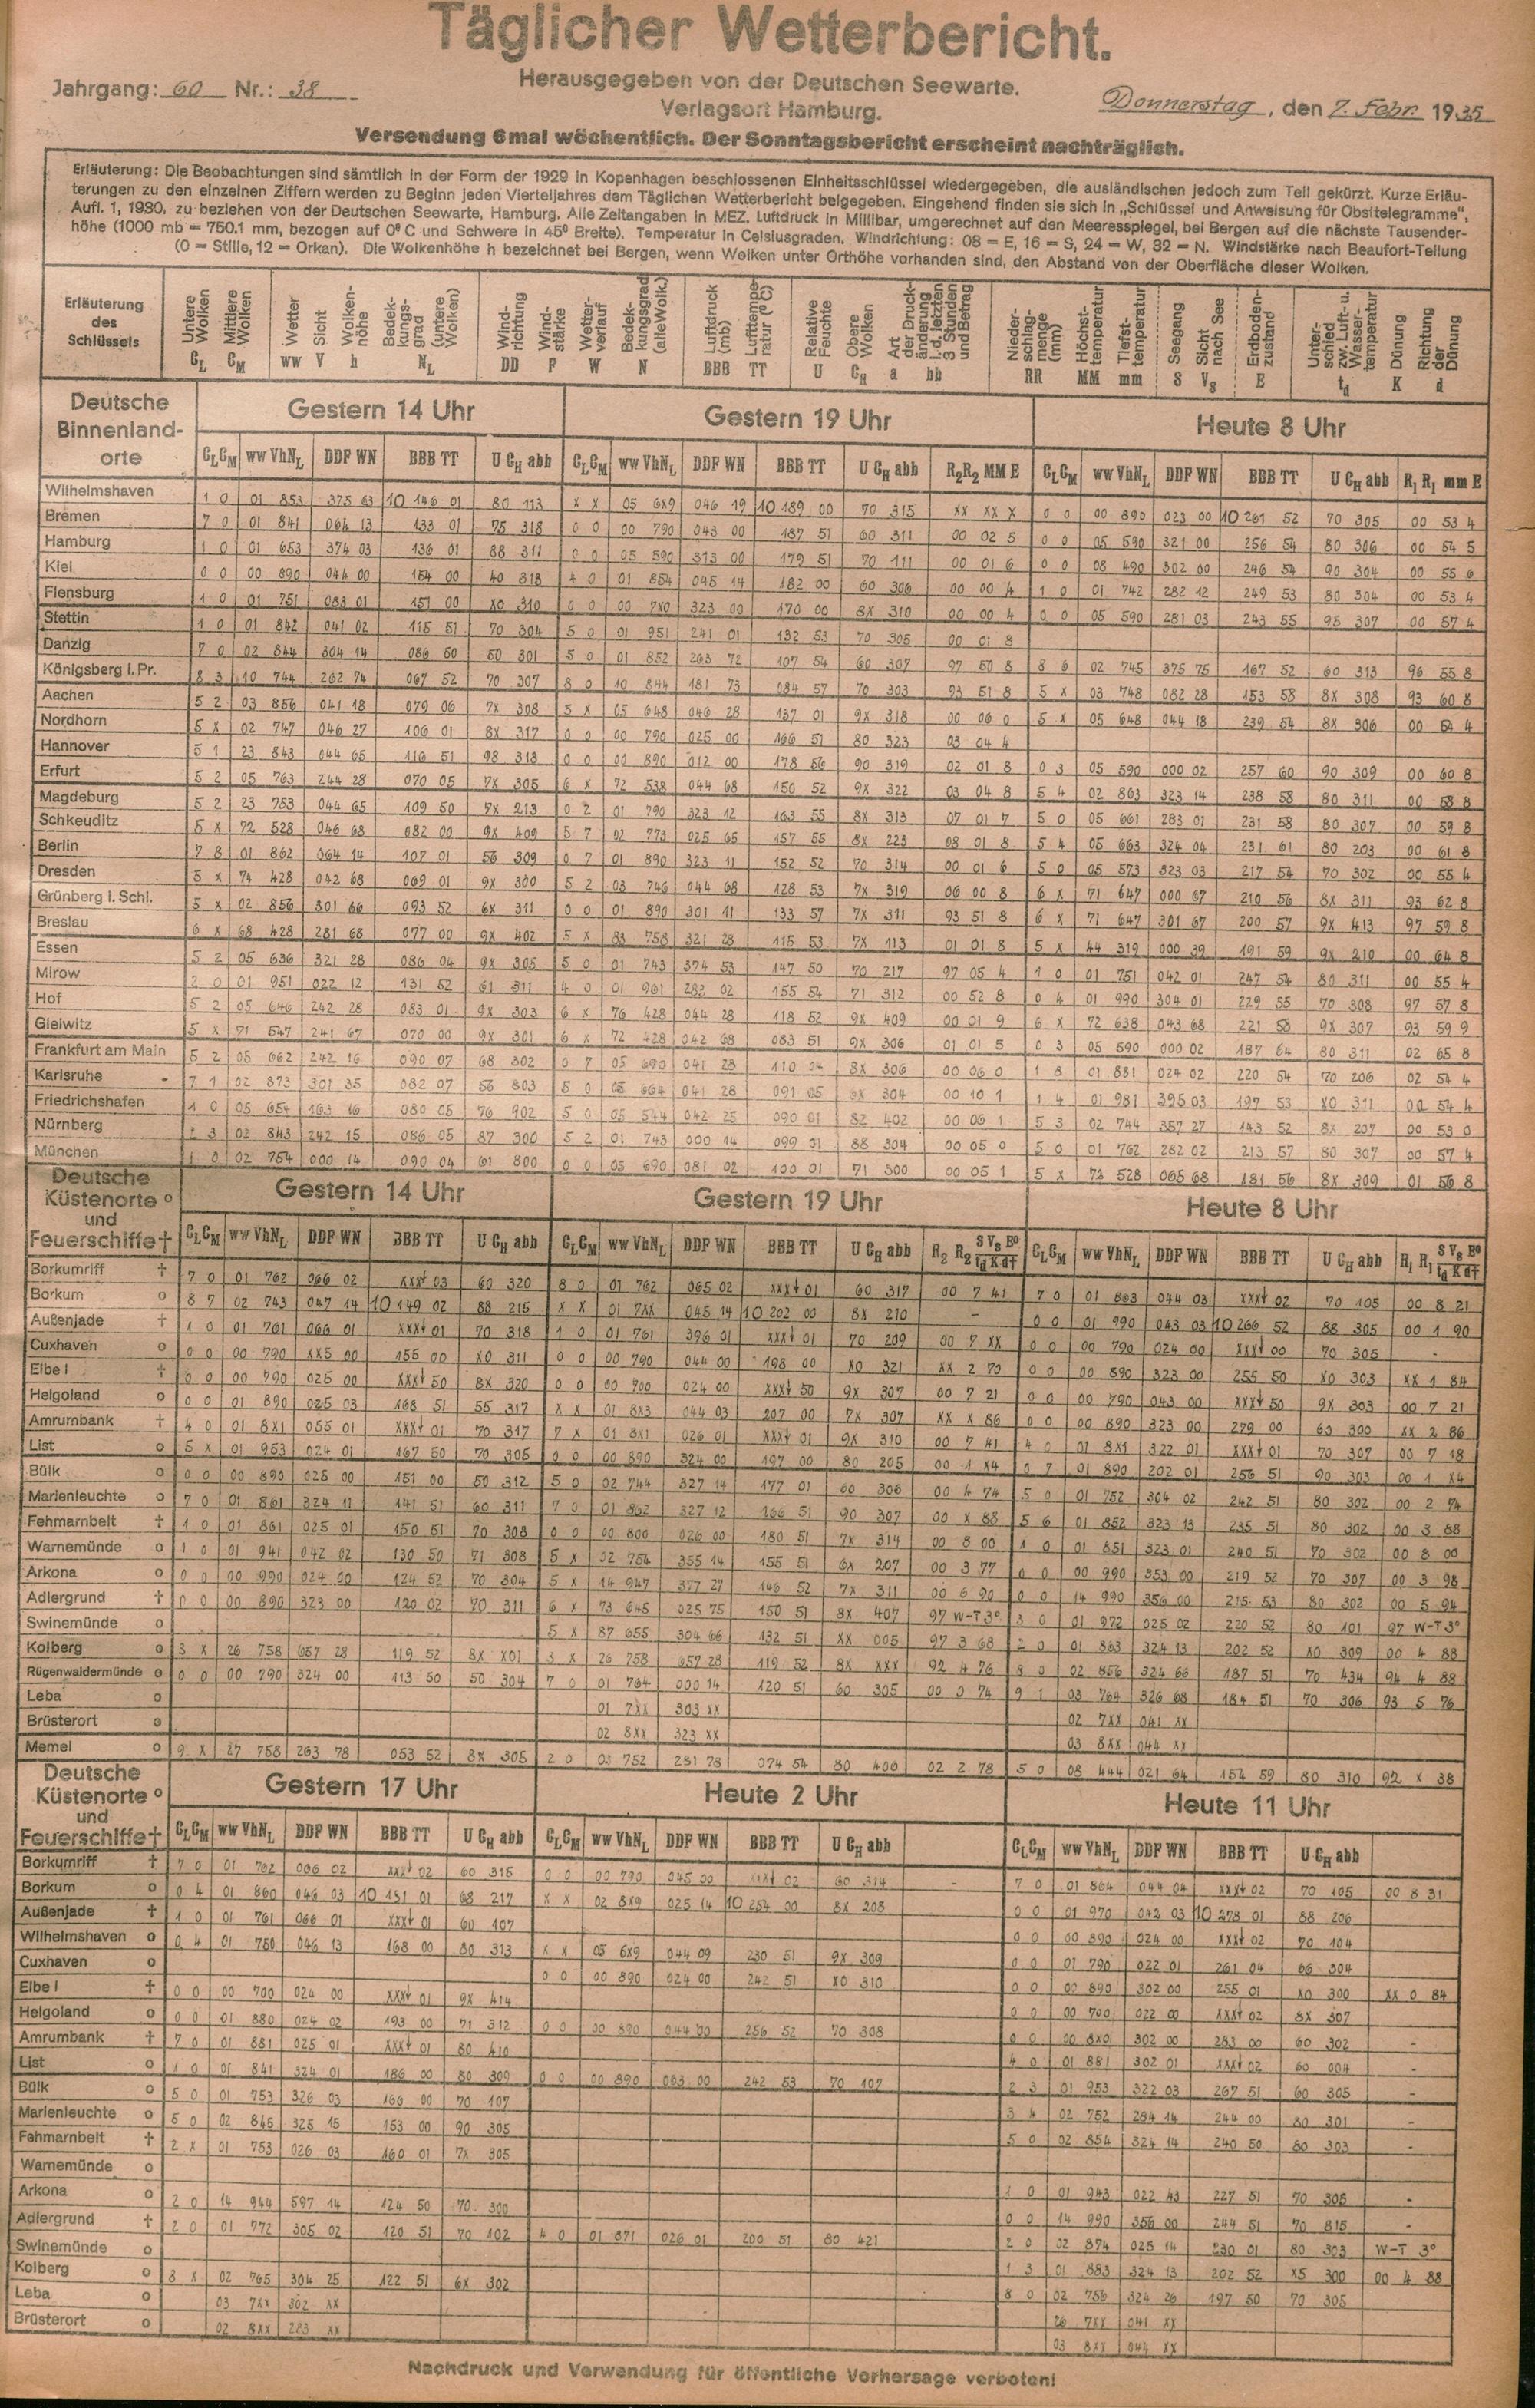 Täglicher Wetterbericht.
Jahrgang: 60 Nr.: 38
Herausgegeben von der Deutschen Seewarte.
Verlagsort Hamburg.
Donnerstag, den 7. Febr. 1935
Versendung 6mal wöchentlich. Der Sonntagsbericht erscheint nachträglich.
Erläuterung: Die Beobachtungen sind sämtlich in der Form der 1929 in Kopenhagen beschlossenen Einheitsschlüssel wiedergegeben, die ausländischen jedoch zum Teil gekürzt. Kurze Erläu-
terungen zu den einzelnen Ziffern werden zu Beginn jeden Vierteljahres dem Täglichen Wetterbericht beigegeben. Eingehend finden sie sich in „Schlüssel und Anweisung für Obsttelegramme“,
Aufl. 1, 1930, zu beziehen von der Deutschen Seewarte, Hamburg. Alle Zeitangaben in MEZ, Luftdruck in Millibar, umgerechnet auf den Meeresspiegel, bei Bergen auf die nächste Tausender-
höhe (1000 mb = 750.1 mm, bezogen auf 0° C und Schwere in 45° Breite). Temperatur in Celsiusgraden. Windrichtung: 08 = E, 16 = S, 24 = W, 32 = N. Windstärke nach Beaufort-Teilung
(0 = Stille, 12 = Orkan). Die Wolkenhöhe h bezeichnet bei Bergen, wenn Wolken unter Orthöhe vorhanden sind, den Abstand von der Oberfläche dieser Wolken.
Erläuterung des Schlüssels
Untere Wolken CL Mittlere Wolken CM Wetter ww Sicht V Wolken-höhe h Bedek-kungs-grad (untere Wolken) NL Wind-richtung DD Wind-stärke F Wetter-verlauf W Bedek-kungsgrad (alle Wolk.) N Luftdruck (mb) BBB Lufttempe-ratur (°C) TT Relative Feuchte U Obere Wolken CH Art der Druck-änderung i.d. letzten 3 Stunden und Betrag a bb Nieder-schlag-menge (mm) RR Höchst-temperatur MM Tiefst-temperatur mm Seegang S Sicht nach See VS Erdboden-zustand E Unter-schied zw. Luft- u. Wasser-temperatur td Dünung K Richtung der Dünung d
Deutsche Binnenland-orte
Gestern 14 Uhr Gestern 19 Uhr Heute 8 Uhr
CLCM ww VhNL DDF WN BBB TT U CH abb CLCM ww VhNL DDF WN BBB TT U CH abb R2R2 MM E CLCM ww VhNL DDF WN BBB TT U CH abb R1 R1 mm E
Wilhelmshaven 1 0 01 853 375 63 10 146 01 80 113 x x 05 6x9 046 19 10 189 00 70 315 xx xx x 0 0 00 890 023 00 10 261 52 70 305 00 53 4
Bremen 7 0 01 841 064 13 133 01 75 318 0 0 00 790 043 00 187 51 60 311 00 02 5 0 0 05 590 321 00 256 54 80 306 00 54 5
Hamburg 1 0 01 653 374 03 136 01 88 311 0 0 05 590 313 00 179 51 70 111 00 01 6 0 0 08 490 302 00 246 54 90 304 00 55 6
Kiel 0 0 00 890 044 00 154 00 40 313 4 0 01 854 045 14 182 00 60 306 00 00 4 1 0 01 742 282 12 249 53 80 304 00 53 4
Flensburg 1 0 01 751 083 01 151 00 x0 310 0 0 00 7x0 323 00 170 00 8x 310 00 00 4 0 0 05 590 281 03 243 55 95 307 00 57 4
Stettin 1 0 01 842 041 02 115 51 70 304 5 0 01 951 241 01 132 53 70 305 00 01 8
Danzig 7 0 02 844 304 14 086 50 50 301 5 0 01 852 263 72 107 54 60 307 97 50 8 8 6 02 745 375 75 167 52 60 313 96 55 8
Königsberg i. Pr. 8 3 10 744 262 74 067 52 70 307 8 0 10 844 181 73 084 57 70 303 93 51 8 5 x 03 748 082 28 153 58 8x 308 93 60 8
Aachen 5 2 03 856 041 18 079 06 7x 308 5 x 05 648 046 28 137 01 9x 318 00 06 0 5 x 05 648 044 18 239 54 8x 306 00 54 4
Nordhorn 5 x 02 747 046 27 106 01 8x 317 0 0 00 790 025 00 166 51 80 323 03 04 4
Hannover 5 1 23 843 044 65 116 51 98 318 0 0 00 890 012 00 178 56 90 319 02 01 8 0 3 05 590 000 02 257 60 90 309 00 60 8
Erfurt 5 2 05 763 244 28 070 05 7x 305 6 x 72 538 044 68 150 52 9x 322 03 04 8 5 4 02 863 323 14 238 58 80 311 00 58 8
Magdeburg 5 2 23 753 044 65 109 50 7x 213 0 2 01 790 323 12 163 55 8x 313 07 01 7 5 0 05 661 283 01 231 58 80 307 00 59 8
Schkeuditz 5 x 72 528 046 68 082 00 9x 409 5 7 02 773 025 65 157 55 8x 223 08 01 8 5 4 05 663 324 04 231 61 80 203 00 61 8
Berlin 7 8 01 862 064 14 107 01 56 309 0 7 01 890 323 11 152 52 70 314 00 01 6 5 0 05 573 323 03 217 54 70 302 00 55 4
Dresden 5 x 74 428 042 68 069 01 9x 300 5 2 03 746 044 68 128 53 7x 319 06 00 8 6 x 71 647 000 67 210 56 8x 311 93 62 8
Grünberg i. Schl. 5 x 02 856 301 66 093 52 6x 311 0 0 01 890 301 11 133 57 7x 311 93 51 8 6 x 71 647 301 67 200 57 9x 413 97 59 8
Breslau 6 x 68 428 281 68 077 00 9x 402 5 x 83 758 321 28 115 53 7x 113 01 01 8 5 x 44 319 000 39 191 59 9x 210 00 64 8
Essen 5 2 05 636 321 28 086 04 9x 305 5 0 01 743 374 53 147 50 70 217 97 05 4 1 0 01 751 042 01 247 54 80 311 00 55 4
Mirow 2 0 01 951 022 12 131 52 61 311 4 0 01 961 282 02 155 54 71 312 00 52 8 0 4 01 990 304 01 229 55 70 308 97 57 8
Hof 5 2 05 646 242 28 083 01 9x 303 6 x 76 428 044 28 118 52 9x 409 00 01 9 6 x 72 638 043 68 221 58 9x 307 93 59 9
Gleiwitz 5 x 71 547 241 67 070 00 9x 301 6 x 72 428 042 68 083 51 9x 306 01 01 5 0 3 05 590 000 02 187 64 80 311 02 65 8
Frankfurt am Main 5 2 05 662 242 16 090 07 68 302 0 7 05 690 041 28 110 04 8x 306 00 06 0 1 8 01 881 024 02 220 54 70 206 02 54 4
Karlsruhe 7 1 02 873 301 35 082 07 56 803 5 0 05 664 041 28 091 05 304 00 10 1 1 4 01 981 395 03 197 53 x0 311 02 54 4
Friedrichshafen 1 0 05 654 163 16 080 05 76 902 5 0 05 544 042 25 090 01 82 402 00 06 1 5 3 02 744 357 27 143 52 8x 207 00 53 0
Nürnberg 2 3 02 843 242 15 086 05 87 300 5 2 01 743 000 14 099 01 88 304 00 05 0 5 0 01 762 282 02 213 57 80 307 00 57 4
München 1 0 02 754 000 14 090 04 61 800 0 0 05 690 081 02 100 01 71 300 00 05 1 5 x 73 528 065 68 181 56 8x 309 01 56 8
Deutsche Küstenorte o und Feuerschiffe †
Gestern 14 Uhr Gestern 19 Uhr Heute 8 Uhr
CLCM ww VhNL DDF WN BBB TT U CH abb CLCM ww VhNL DDF WN BBB TT U CH abb R2 R2 S VS E° td K d† CLCM ww VhNL DDF WN BBB TT U CH abb R1 R1 S VS E° td K d†
Borkumriff † 7 0 01 762 066 02 xxx† 03 60 320 8 0 01 762 065 02 xxx† 01 60 317 00 7 41 7 0 01 863 044 03 xxx† 02 70 105 00 8 21
Borkum o 8 7 02 743 047 14 10 149 02 88 215 x x 01 7xx 045 14 10 202 00 8x 210 - 0 0 01 990 043 03 10 266 52 88 305 00 1 90
Außenjade † 1 0 01 761 066 01 xxx† 01 70 318 1 0 01 761 396 01 xxx† 01 70 209 00 7 xx 0 0 00 790 024 00 xxx† 00 70 305 -
Cuxhaven o 0 0 00 790 xx5 00 155 00 x0 311 0 0 00 790 044 00 198 00 x0 321 xx 2 70 0 0 00 890 323 00 255 50 x0 303 xx 1 84
Elbe I † 0 0 00 790 026 00 xxx† 50 8x 320 0 0 00 700 024 00 xxx† 50 9x 307 00 7 21 0 0 00 790 043 00 xxx† 50 9x 303 00 7 21
Helgoland o 0 0 01 890 025 03 168 51 55 317 x x 01 8x3 044 03 207 00 7x 307 xx x 86 0 0 00 890 323 00 279 00 60 300 xx 2 86
Amrumbank † 4 0 01 8x1 055 01 xxx† 01 70 317 7 x 01 8x1 026 01 xxx† 01 9x 310 00 7 41 4 0 01 8x1 322 01 xxx† 01 70 307 00 7 18
List o 5 x 01 953 024 01 167 50 70 305 0 0 00 890 324 00 197 00 80 205 00 1 x4 0 7 01 890 202 01 256 51 90 303 00 1 x4
Bülk o 0 0 00 890 025 00 151 00 50 312 5 0 02 744 327 14 177 01 60 306 00 4 74 5 0 01 752 304 02 242 51 80 302 00 2 74
Marienleuchte o 7 0 01 861 324 11 141 51 60 311 7 0 01 862 327 12 166 51 90 307 00 x 88 5 6 01 852 323 13 235 51 80 302 00 3 88
Fehmarnbelt † 1 0 01 861 025 01 150 51 70 308 0 0 00 800 026 00 180 51 7x 314 00 8 00 1 0 01 851 323 01 240 51 70 302 00 8 00
Warnemünde o 1 0 01 941 042 02 130 50 71 308 5 x 02 754 355 14 155 51 6x 207 00 3 77 0 0 00 990 353 00 219 52 70 307 00 3 98
Arkona o 0 0 00 990 024 00 124 52 70 304 5 x 14 947 377 27 146 52 7x 311 00 6 90 0 0 14 990 356 00 215 53 80 302 00 5 94
Adlergrund † 0 0 00 890 323 00 120 02 70 311 6 x 73 645 025 75 150 51 8x 407 97 W-T 3° 3 0 01 972 025 02 220 52 80 101 97 W-T 3°
Swinemünde o 5 x 87 655 304 66 132 51 xx 005 97 3 68 2 0 01 863 324 13 202 52 x0 309 00 4 88
Kolberg o 3 x 26 758 657 28 119 52 8x x01 3 x 26 758 657 28 119 52 8x xxx 92 4 76 8 0 02 856 324 66 187 51 70 434 94 4 88
Rügenwaldermünde o 0 0 00 790 324 00 113 50 50 304 7 0 01 764 000 14 120 51 60 305 00 0 74 9 1 03 764 326 68 184 51 70 306 93 5 76
Leba o 01 7xx 303 xx 02 7xx 041 xx
Brüsterort o 02 8xx 323 xx 03 8xx 044 xx
Memel o 9 x 27 758 263 78 053 52 8x 305 2 0 03 752 251 78 074 54 80 400 02 2 78 5 0 08 444 021 64 154 59 80 310 92 x 38
Deutsche Küstenorte o und Feuerschiffe †
Gestern 17 Uhr Heute 2 Uhr Heute 11 Uhr
CLCM ww VhNL DDF WN BBB TT U CH abb CLCM ww VhNL DDF WN BBB TT U CH abb CLCM ww VhNL DDF WN BBB TT U CH abb
Borkumriff † 7 0 01 762 066 02 xxx† 02 60 315 0 0 00 790 045 00 xxx† 02 60 314 - 7 0 01 864 044 04 xxx† 02 70 105 00 8 31
Borkum o 0 4 01 860 046 03 10 181 01 68 217 x x 02 8x9 025 14 10 254 00 8x 205 0 0 01 970 042 03 10 278 01 88 206
Außenjade † 1 0 01 761 066 01 xxx† 01 60 107 0 0 00 890 024 00 xxx† 02 70 104
Wilhelmshaven o 0 4 01 750 046 13 168 00 80 313 x x 05 6x9 044 09 230 51 9x 309 0 0 01 790 022 01 261 04 66 304
Cuxhaven o 0 0 00 890 024 00 242 51 x0 310 0 0 00 890 302 00 255 01 x0 300 xx 0 84
Elbe I † 0 0 00 700 024 00 xxx† 01 9x 414 0 0 00 700 022 00 xxx† 02 8x 307
Helgoland o 0 0 01 880 024 02 193 00 71 312 0 0 00 890 044 00 256 52 70 308 0 0 00 8x0 302 00 283 00 60 302 -
Amrumbank † 7 0 01 881 025 01 xxx† 01 80 410 4 0 01 881 302 01 xxx† 02 60 004
List o 1 0 01 841 324 01 186 00 80 309 0 0 00 890 063 00 242 53 70 107 2 3 01 953 322 03 267 51 60 305 -
Bülk o 5 0 01 753 326 03 166 00 70 107 3 4 02 752 284 14 244 00 80 301 -
Marienleuchte o 6 0 02 845 325 15 153 00 90 305 5 0 02 854 324 14 240 50 80 303 -
Fehmarnbelt † 2 x 01 753 026 03 160 01 7x 305
Warnemünde o 1 0 01 943 022 43 227 51 70 305 -
Arkona o 2 0 14 944 597 14 124 50 70 300 0 0 14 990 356 00 244 51 70 815 -
Adlergrund † 2 0 01 772 305 02 120 51 70 102 4 0 01 871 026 01 200 51 80 421 2 0 02 874 025 14 230 01 80 303 W-T 3°
Swinemünde o 1 3 01 883 324 13 202 52 x5 300 00 4 88
Kolberg o 8 x 02 765 304 25 122 51 6x 302 8 0 02 756 324 26 197 50 70 305
Leba o 03 7xx 302 xx 26 7xx 041 xx
Brüsterort o 02 8xx 283 xx 03 8xx 044 xx
Nachdruck und Verwendung für öffentliche Vorhersage verboten!